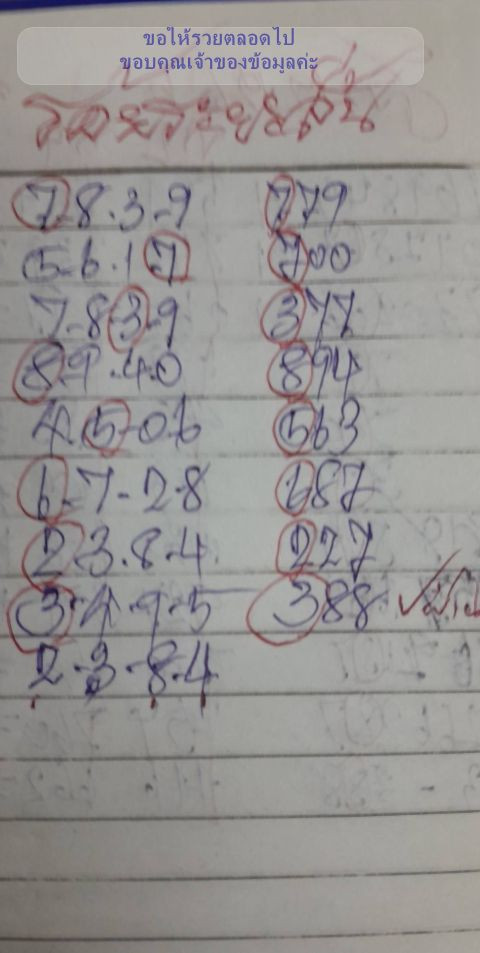 ขอให้รวยตลอดไป
ขอบคุณเจ้าของข้อมูลค่ะ
7-8-3-9 779
5-6-1 7 700
7-8 3-9 377
8 9-4-0 894
4 5-0 6 563
6-7-2-8 687
2-3-8-4 227
3-4-9-5 388
2-3-8-4